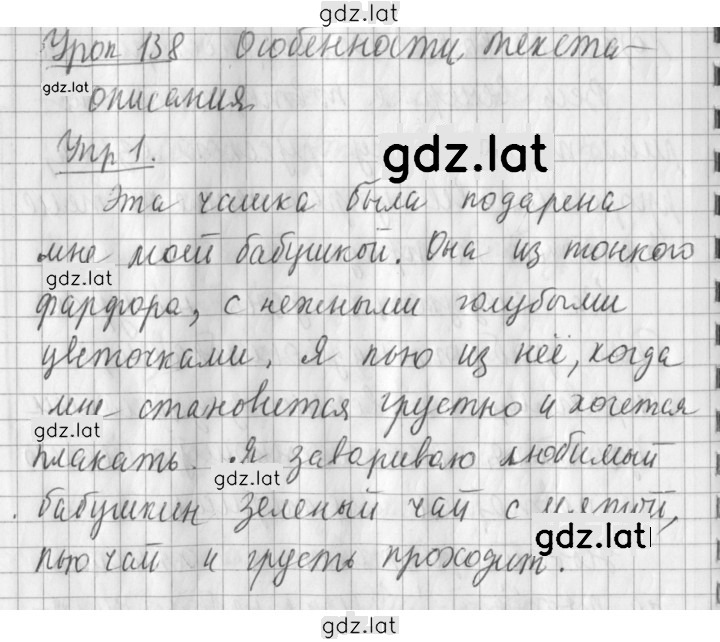 gdz.lat
Урок 138 Особенности текста-
gdz.lat
описания.
Упр 1.
gdz.lat
Эта чашка была подарена
мне моей бабушкой. Она из тонкого
gdz.lat
фарфора, с нежными голубыми
цветочками. Я пью из неё, когда
мне становится грустно и хочется
gdz.lat
плакать. Я завариваю любимый
gdz.lat
бабушкин зеленый чай с мятой,
gdz.lat
пью чай и грусть проходит.
gdz.lat